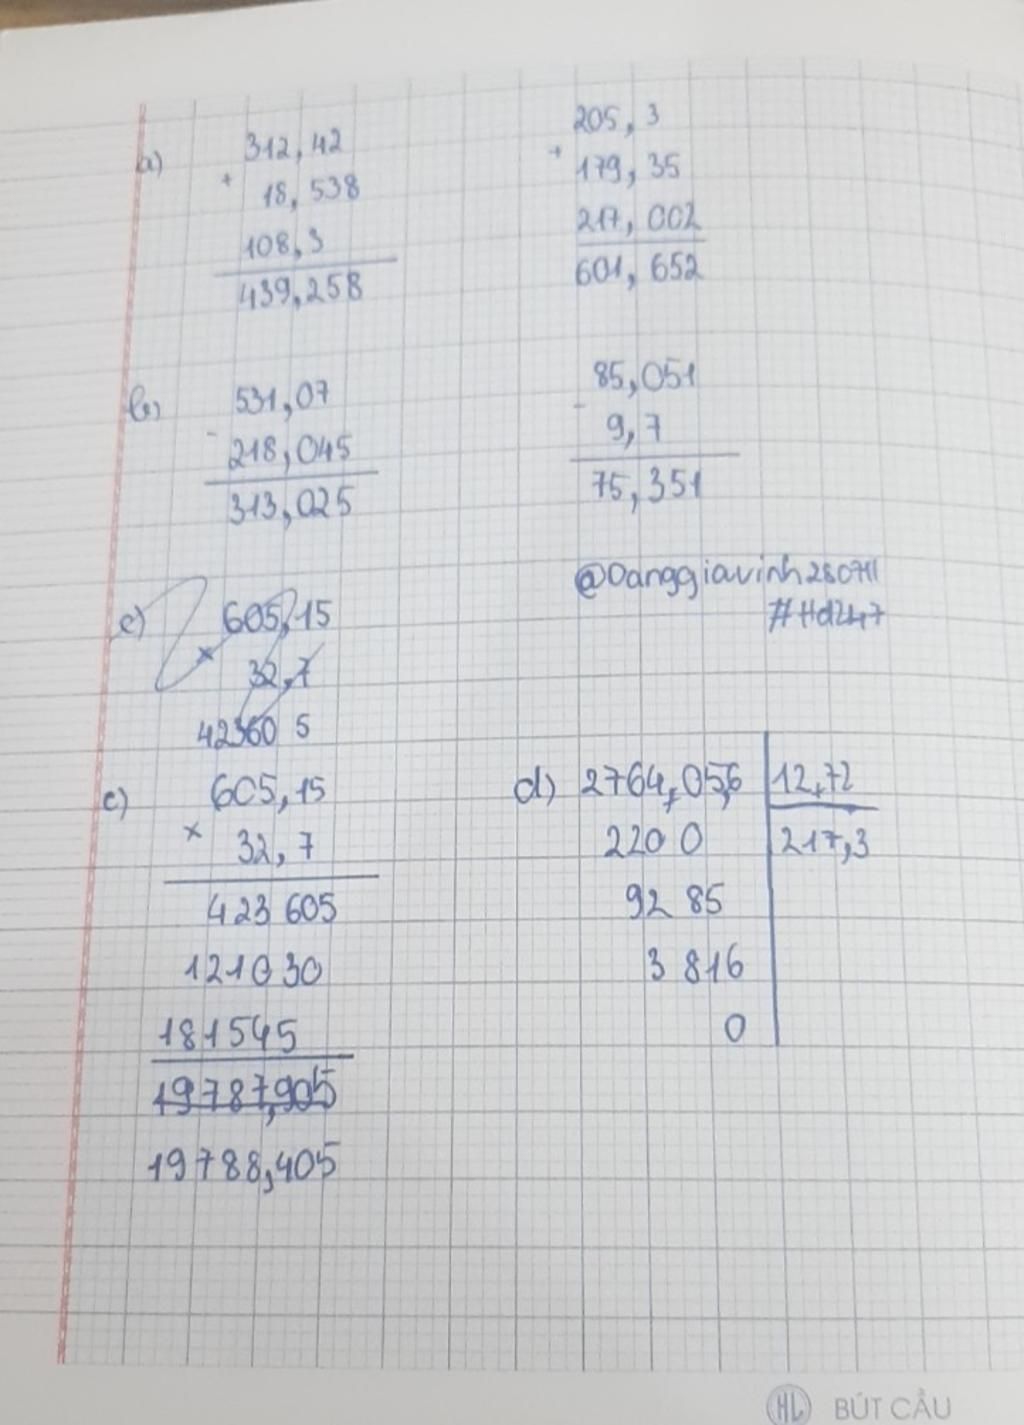 a)
312,42
+
18,538
108,3
439,258
205,3
+
179,35
217,002
601,652
b)
531,07
-
218,045
313,025
85,051
-
9,7
75,351
@Danggiavinh280711
#Hd247
c)
605,15
×
32,7
42360 5
c)
605,15
×
32,7
423 605
121030
181545
19787,905
19788,405
d) 2764,05,6 12,72
220 0 217,3
92 85
3 816
0
HL BÚT CẦU